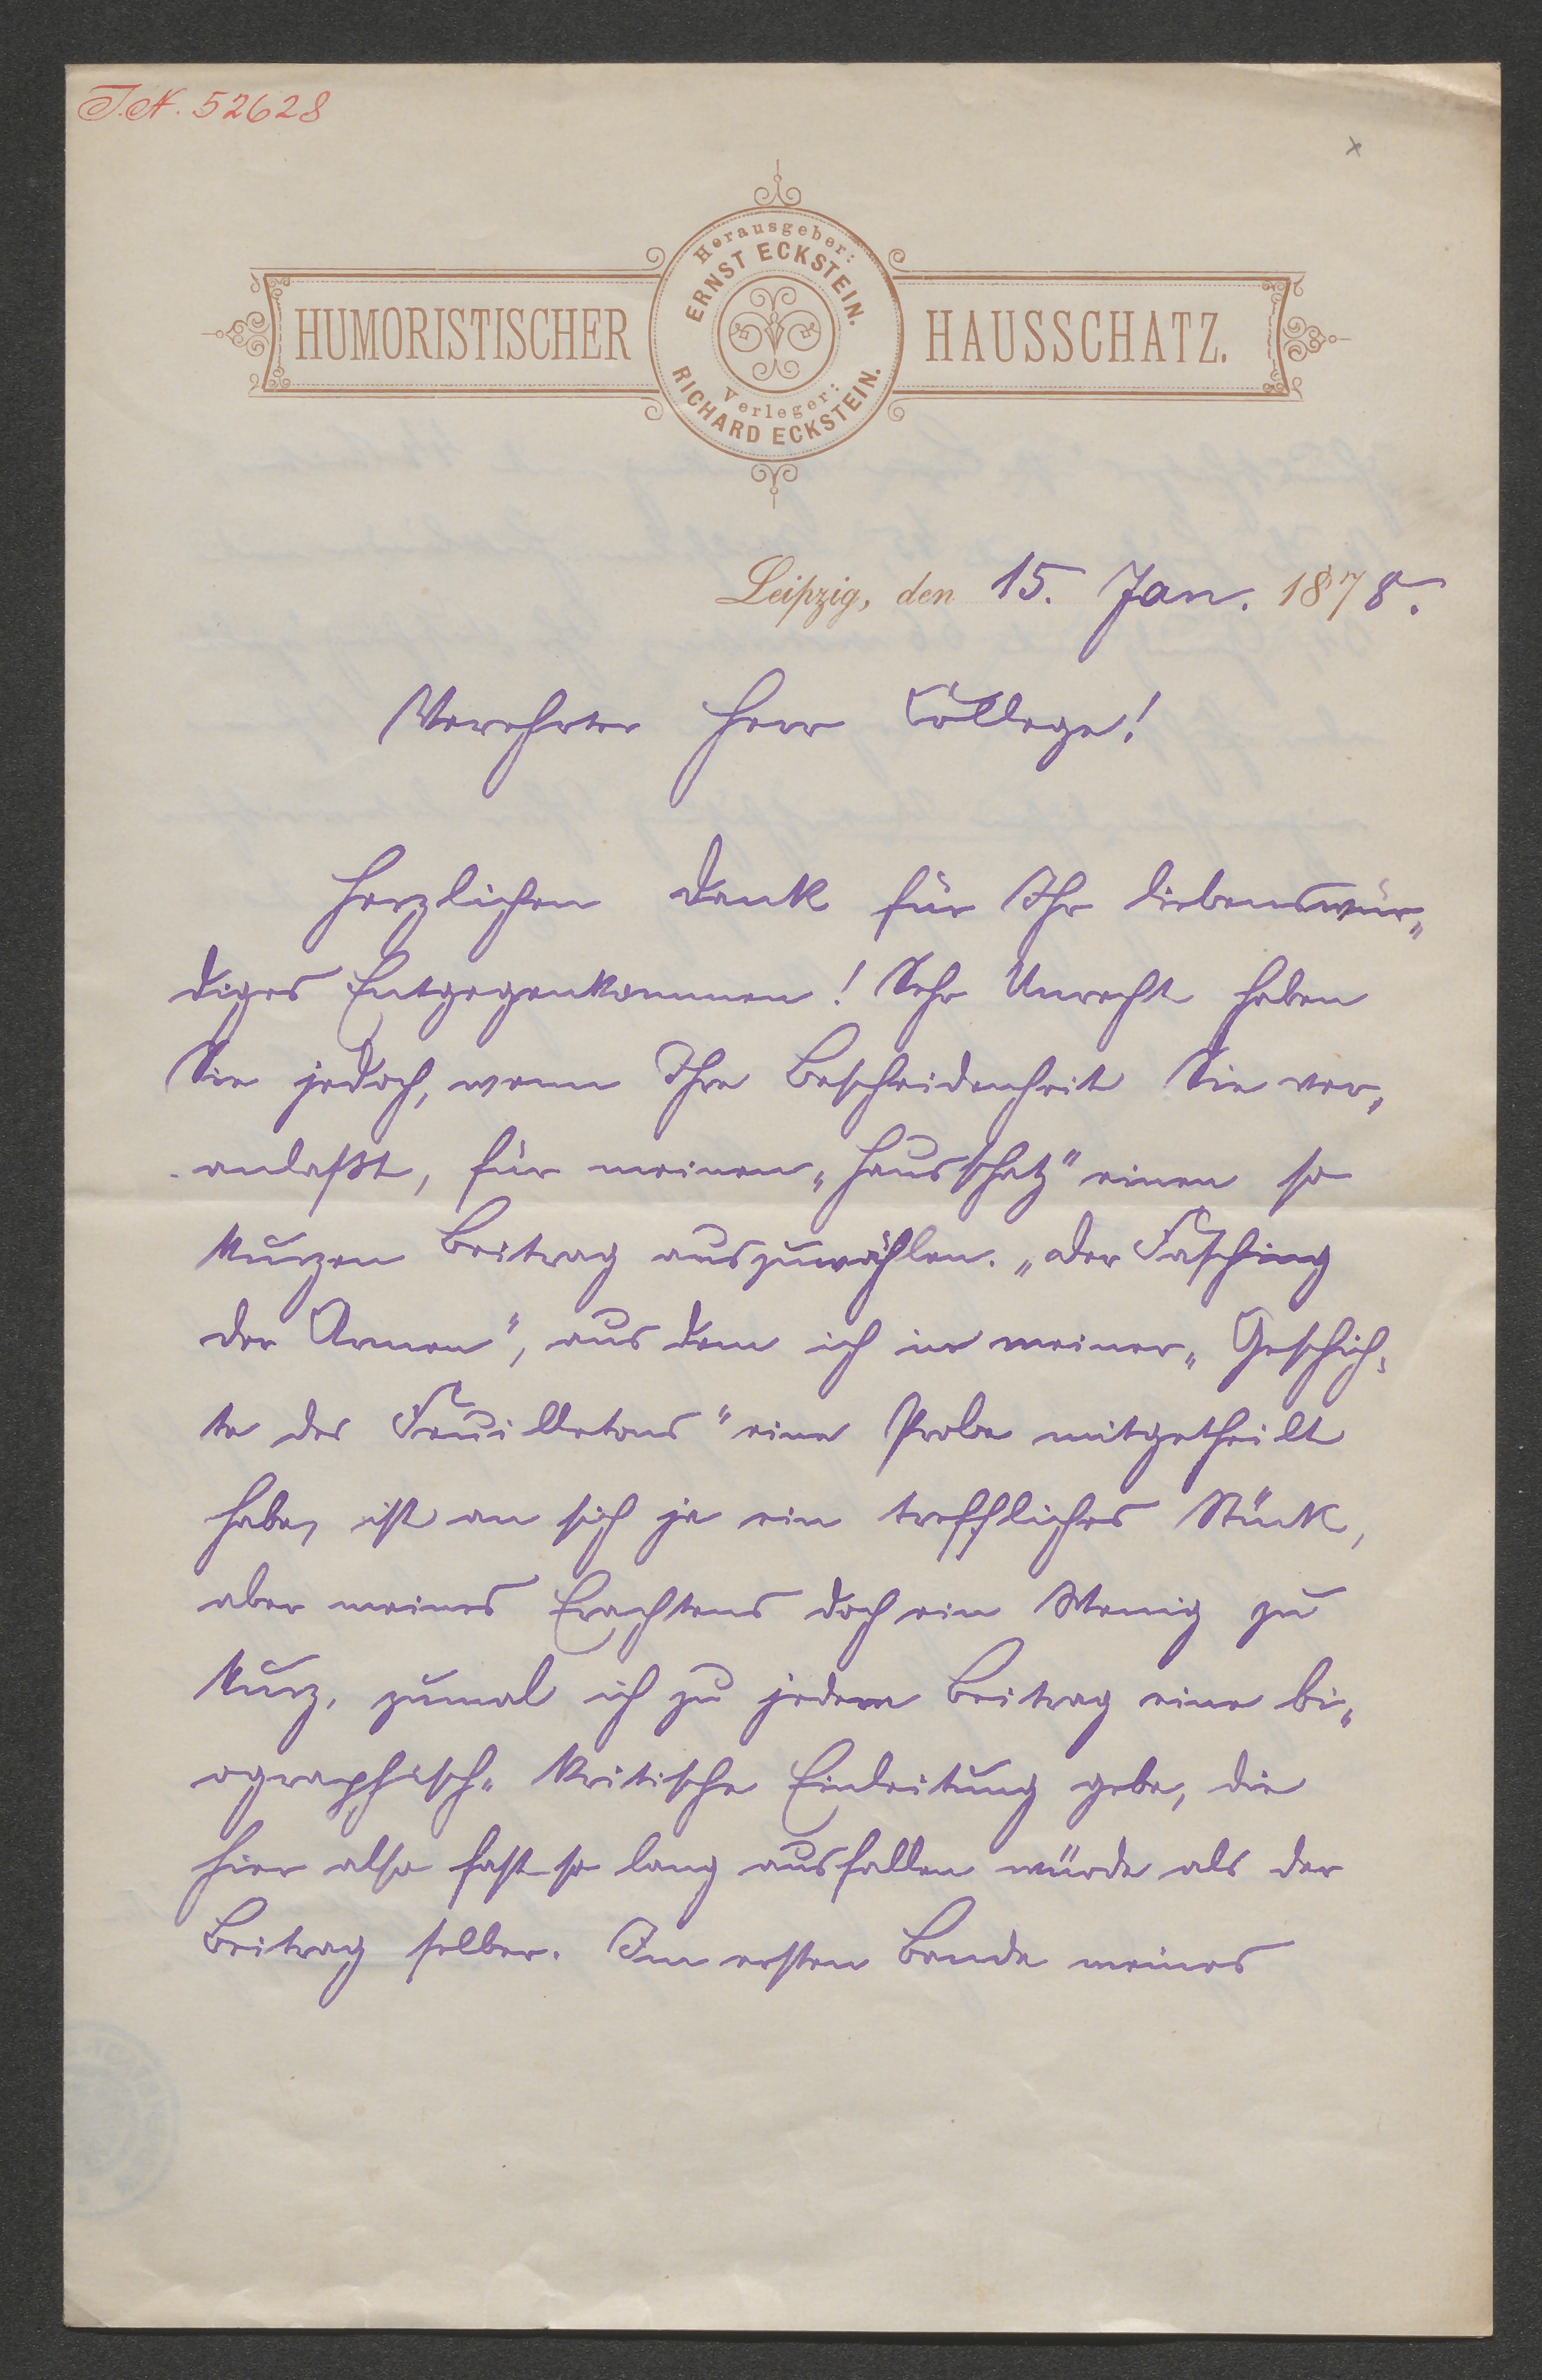 I.N. 52628
x
HUMORISTISCHER
Herausgeber:
ERNST ECKSTEIN.
Verleger:
RICHARD ECKSTEIN.
HAUSSCHATZ.
Leipzig, den 15. Jan. 1878.
Verehrter Herr College!
Herzlichen Dank für Ihr liebenswür„
diges Entgegenkommen! Sehr Unrecht haben
Sie jedoch, wenn Ihre Bescheidenheit Sie ver„
anlaßt, für meinen „Hausschatz“ einen so
kurzen Beitrag auszuwählen. „Der Fasching
der Armen“, aus dem ich in meiner „Geschich„
te des Feuilletons“ eine Probe mitgetheilt
habe, ist an sich ja ein treffliches Stück,
aber meines Erachtens doch ein Wenig zu
kurz, zumal ich zu jedem Beitrag eine bi„
ographisch„ kritische Einleitung gebe, die
hier also fast so lang ausfallen würde als der
Beitrag selber. Im ersten Bande meines